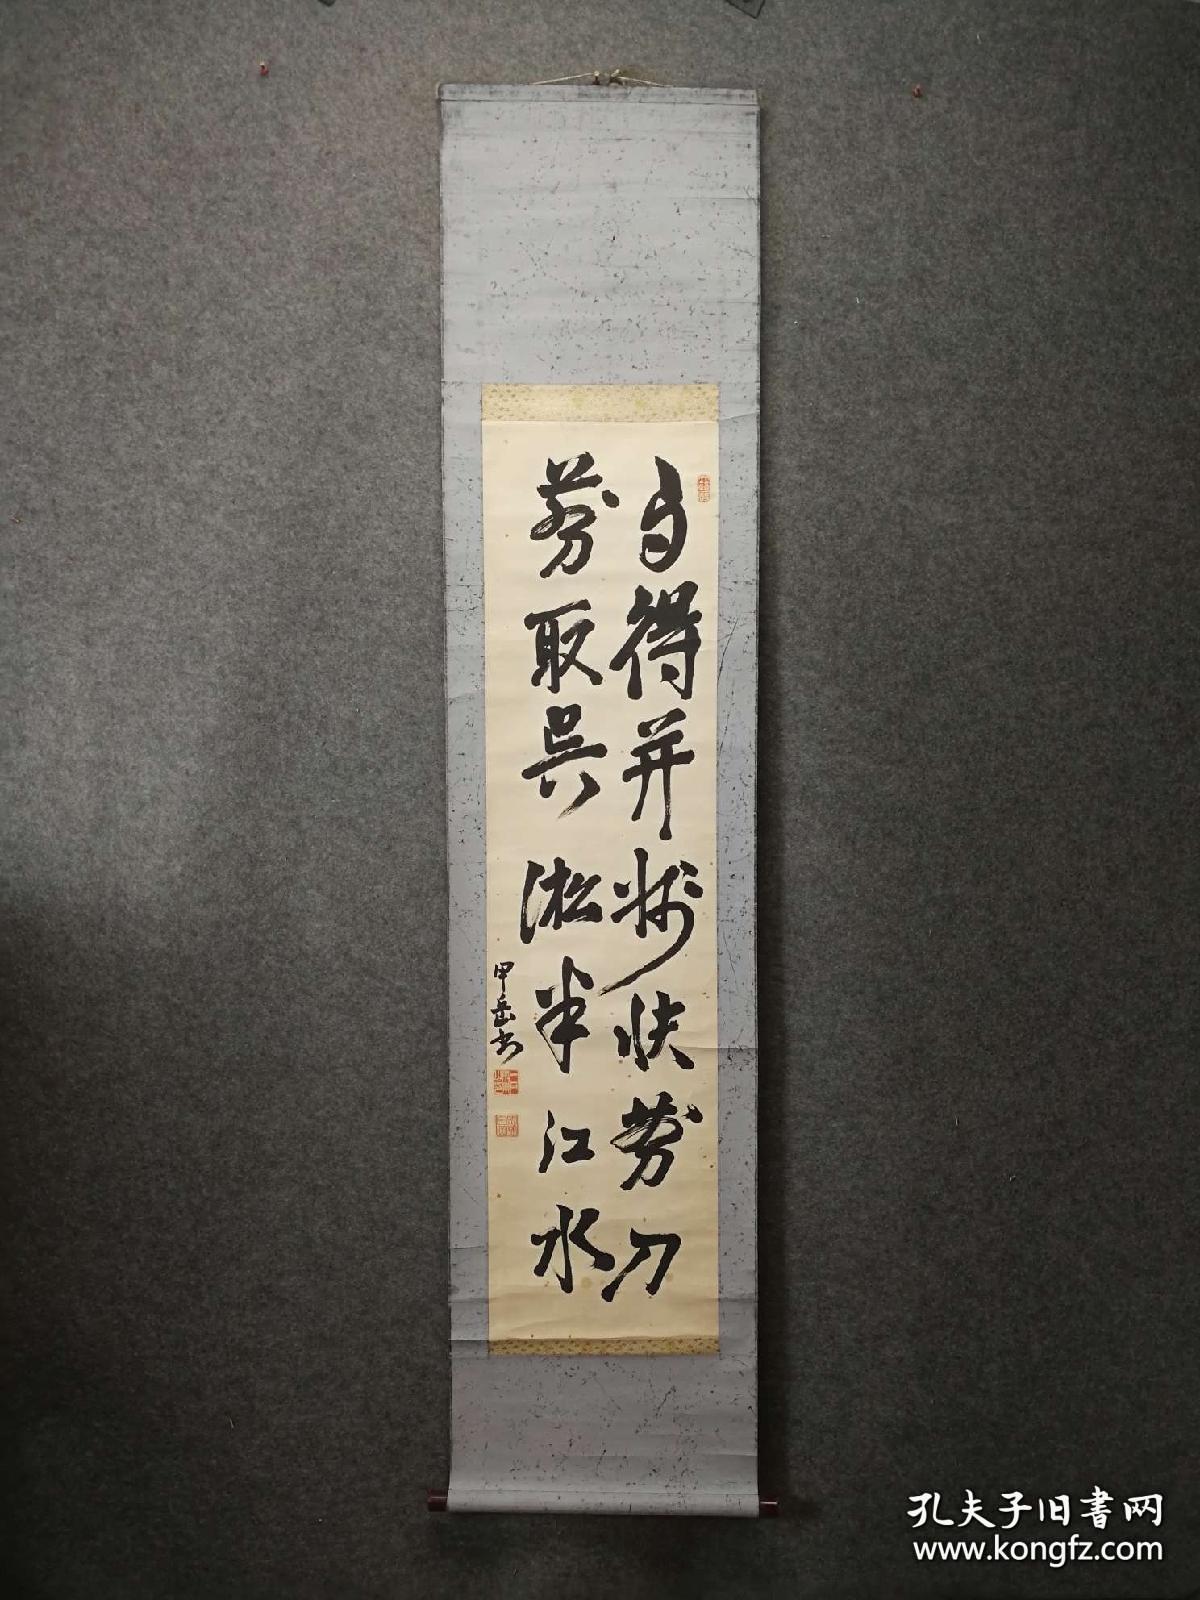 得并州快剪刀
剪取吳淞半江水
甲岳書
孔夫子旧書网
www.kongfz.com